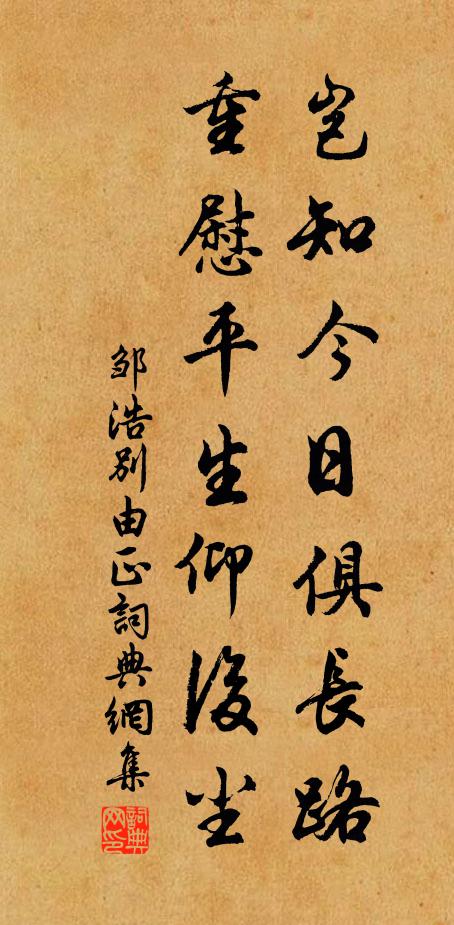 豈知今日俱長路
重慰平生仰後塵
邹浩別由正詞典網集
詞典网印